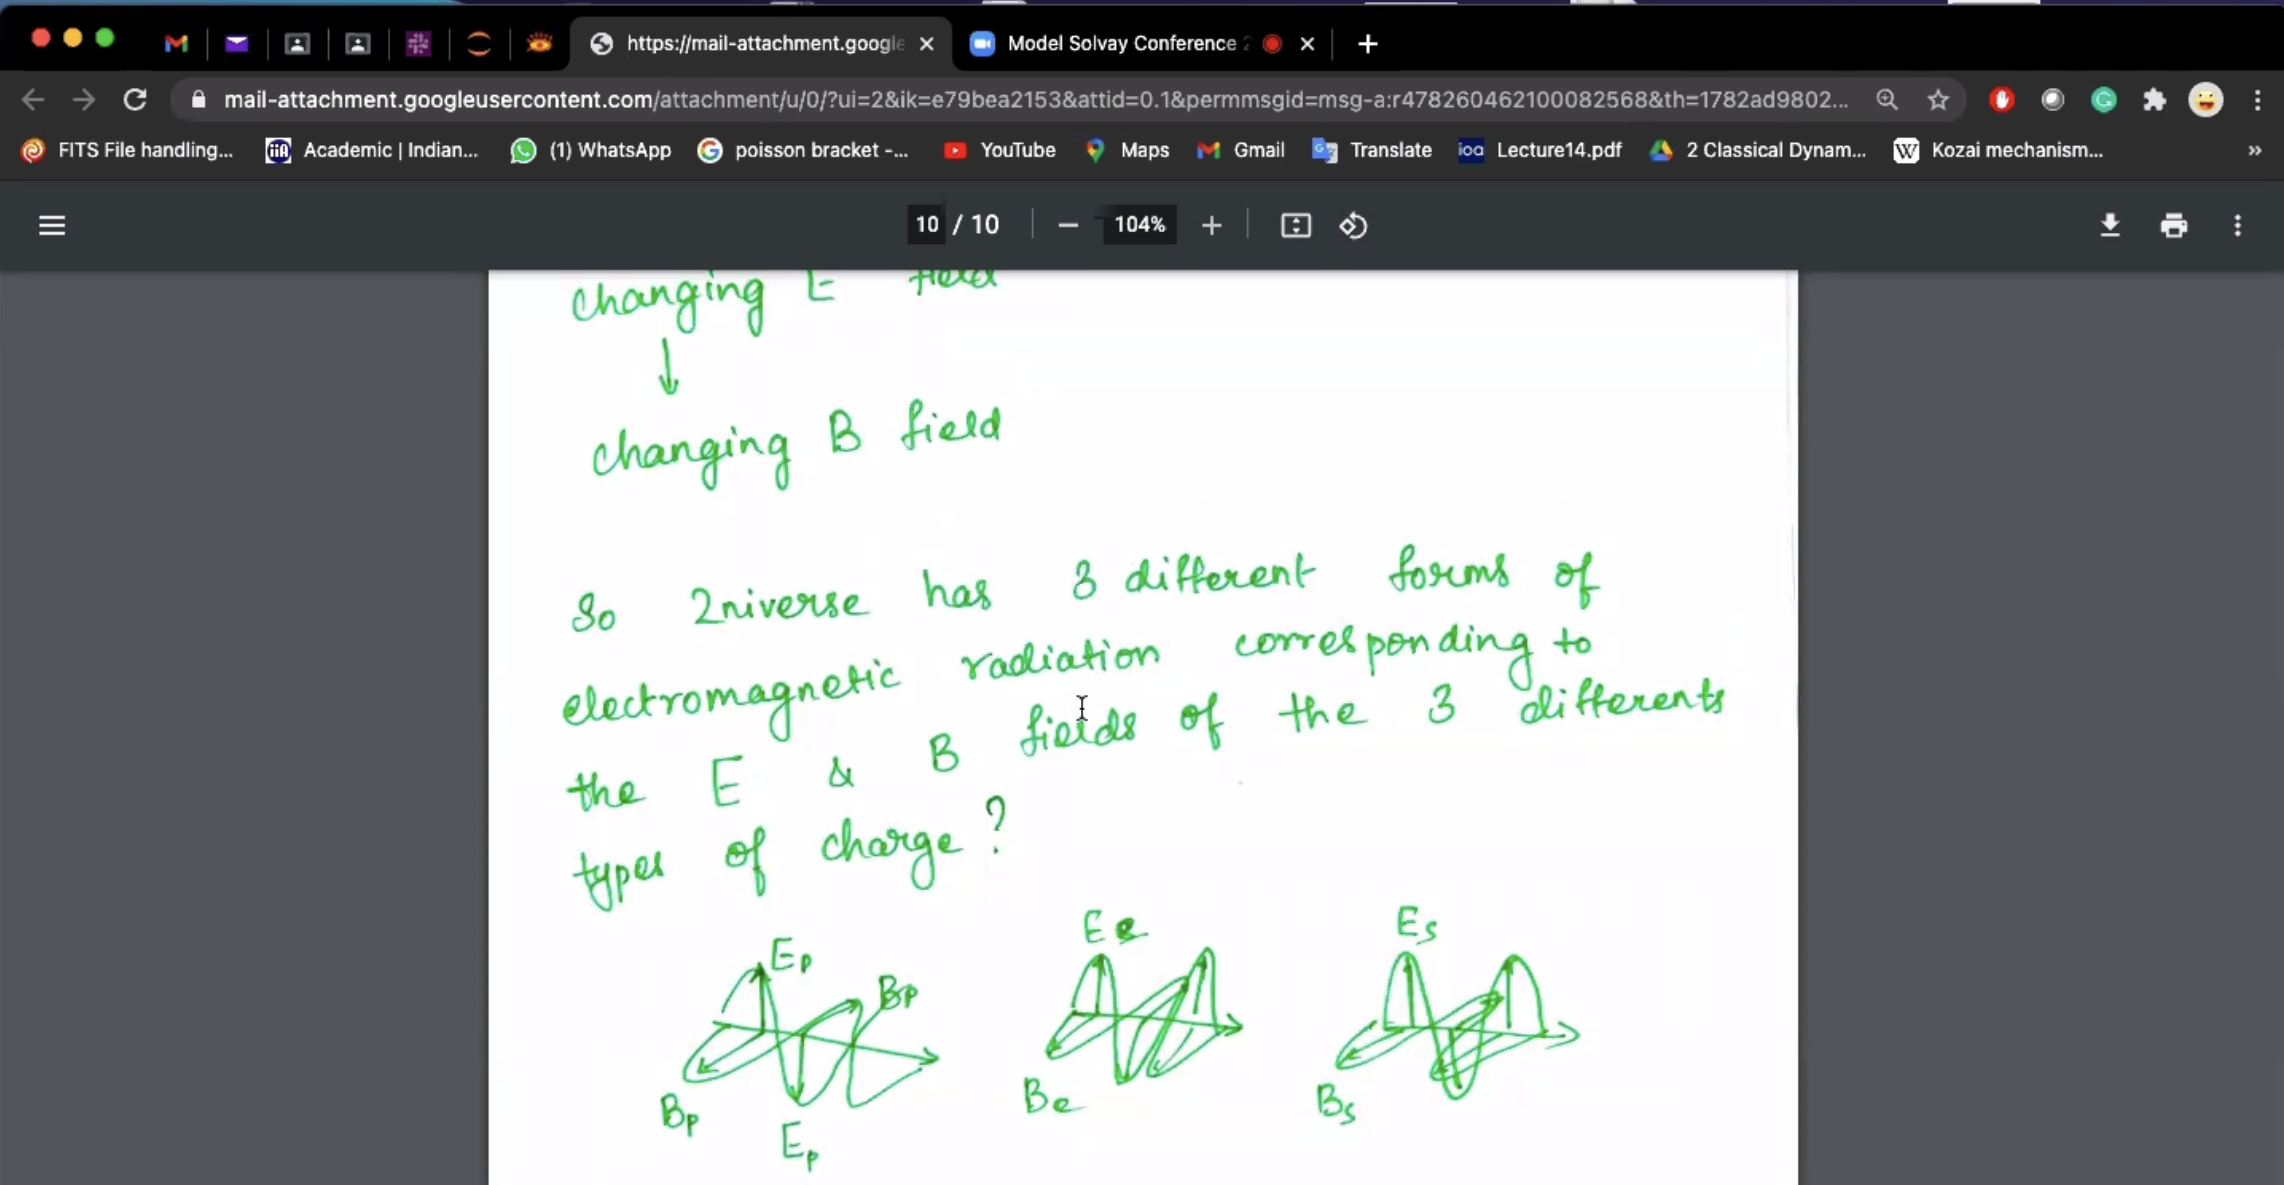 https://mail-attachment.google
Model Solvay Conference 2
mail-attachment.googleusercontent.com/attachment/u/0/?ui=2&ik=e79bea2153&attid=0.1&permmsgid=msg-a:r478260462100082568&th=1782ad9802...
FITS File handling... Academic | Indian... (1) WhatsApp poisson bracket -... YouTube Maps Gmail Translate ioa Lecture14.pdf 2 Classical Dynam... Kozai mechanism... »
10 / 10 − 104% +
changing E field
↓
changing B field
So 2niverse has 3 different forms of
electromagnetic radiation corresponding to
the E & B fields of the 3 differents
types of charge?
Ep Bp Ee Es
Bp Ep Be Bs